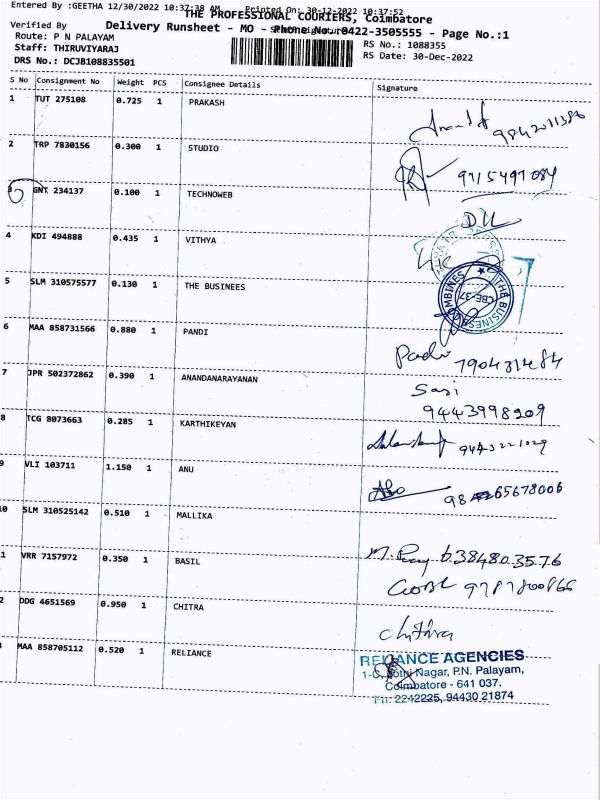 Entered By :GEETHA 12/30/2022 10:37:38 AM Printed On: 30-12-2022 10:37:52
THE PROFESSIONAL COURIERS, Coimbatore
Verified By Delivery Runsheet - MO - Phone No.:0422-3505555 - Page No.:1
Route: P N PALAYAM RS No.: 1088355
Staff: THIRUVIYARAJ RS Date: 30-Dec-2022
DRS No.: DCJB108835501
S No Consignment No Weight PCS Consignee Details Signature
1 TUT 275108 0.725 1 PRAKASH
2 TRP 7830156 0.300 1 STUDIO 9715497084
3 GNT 234137 0.100 1 TECHNOWEB
4 KDI 494888 0.435 1 VITHYA
5 SLM 310575577 0.130 1 THE BUSINEES
THE BUSINESS COMBINES
CBE-37
6 MAA 858731566 0.880 1 PANDI
7 JPR 502372862 0.390 1 ANANDANARAYANAN
Sasi
9443998209
8 TCG 8073663 0.285 1 KARTHIKEYAN 9443221029
9 VLI 103711 1.150 1 ANU
65678006
10 SLM 310525142 0.510 1 MALLIKA
1 VRR 7157972 0.350 1 BASIL
2 DDG 4651569 0.950 1 CHITRA
Chithra
MAA 858705112 0.520 1 RELIANCE
RELIANCE AGENCIES
Nagar, P.N. Palayam,
Coimbatore - 641 037.
Ph: 2242225, 94430 21874